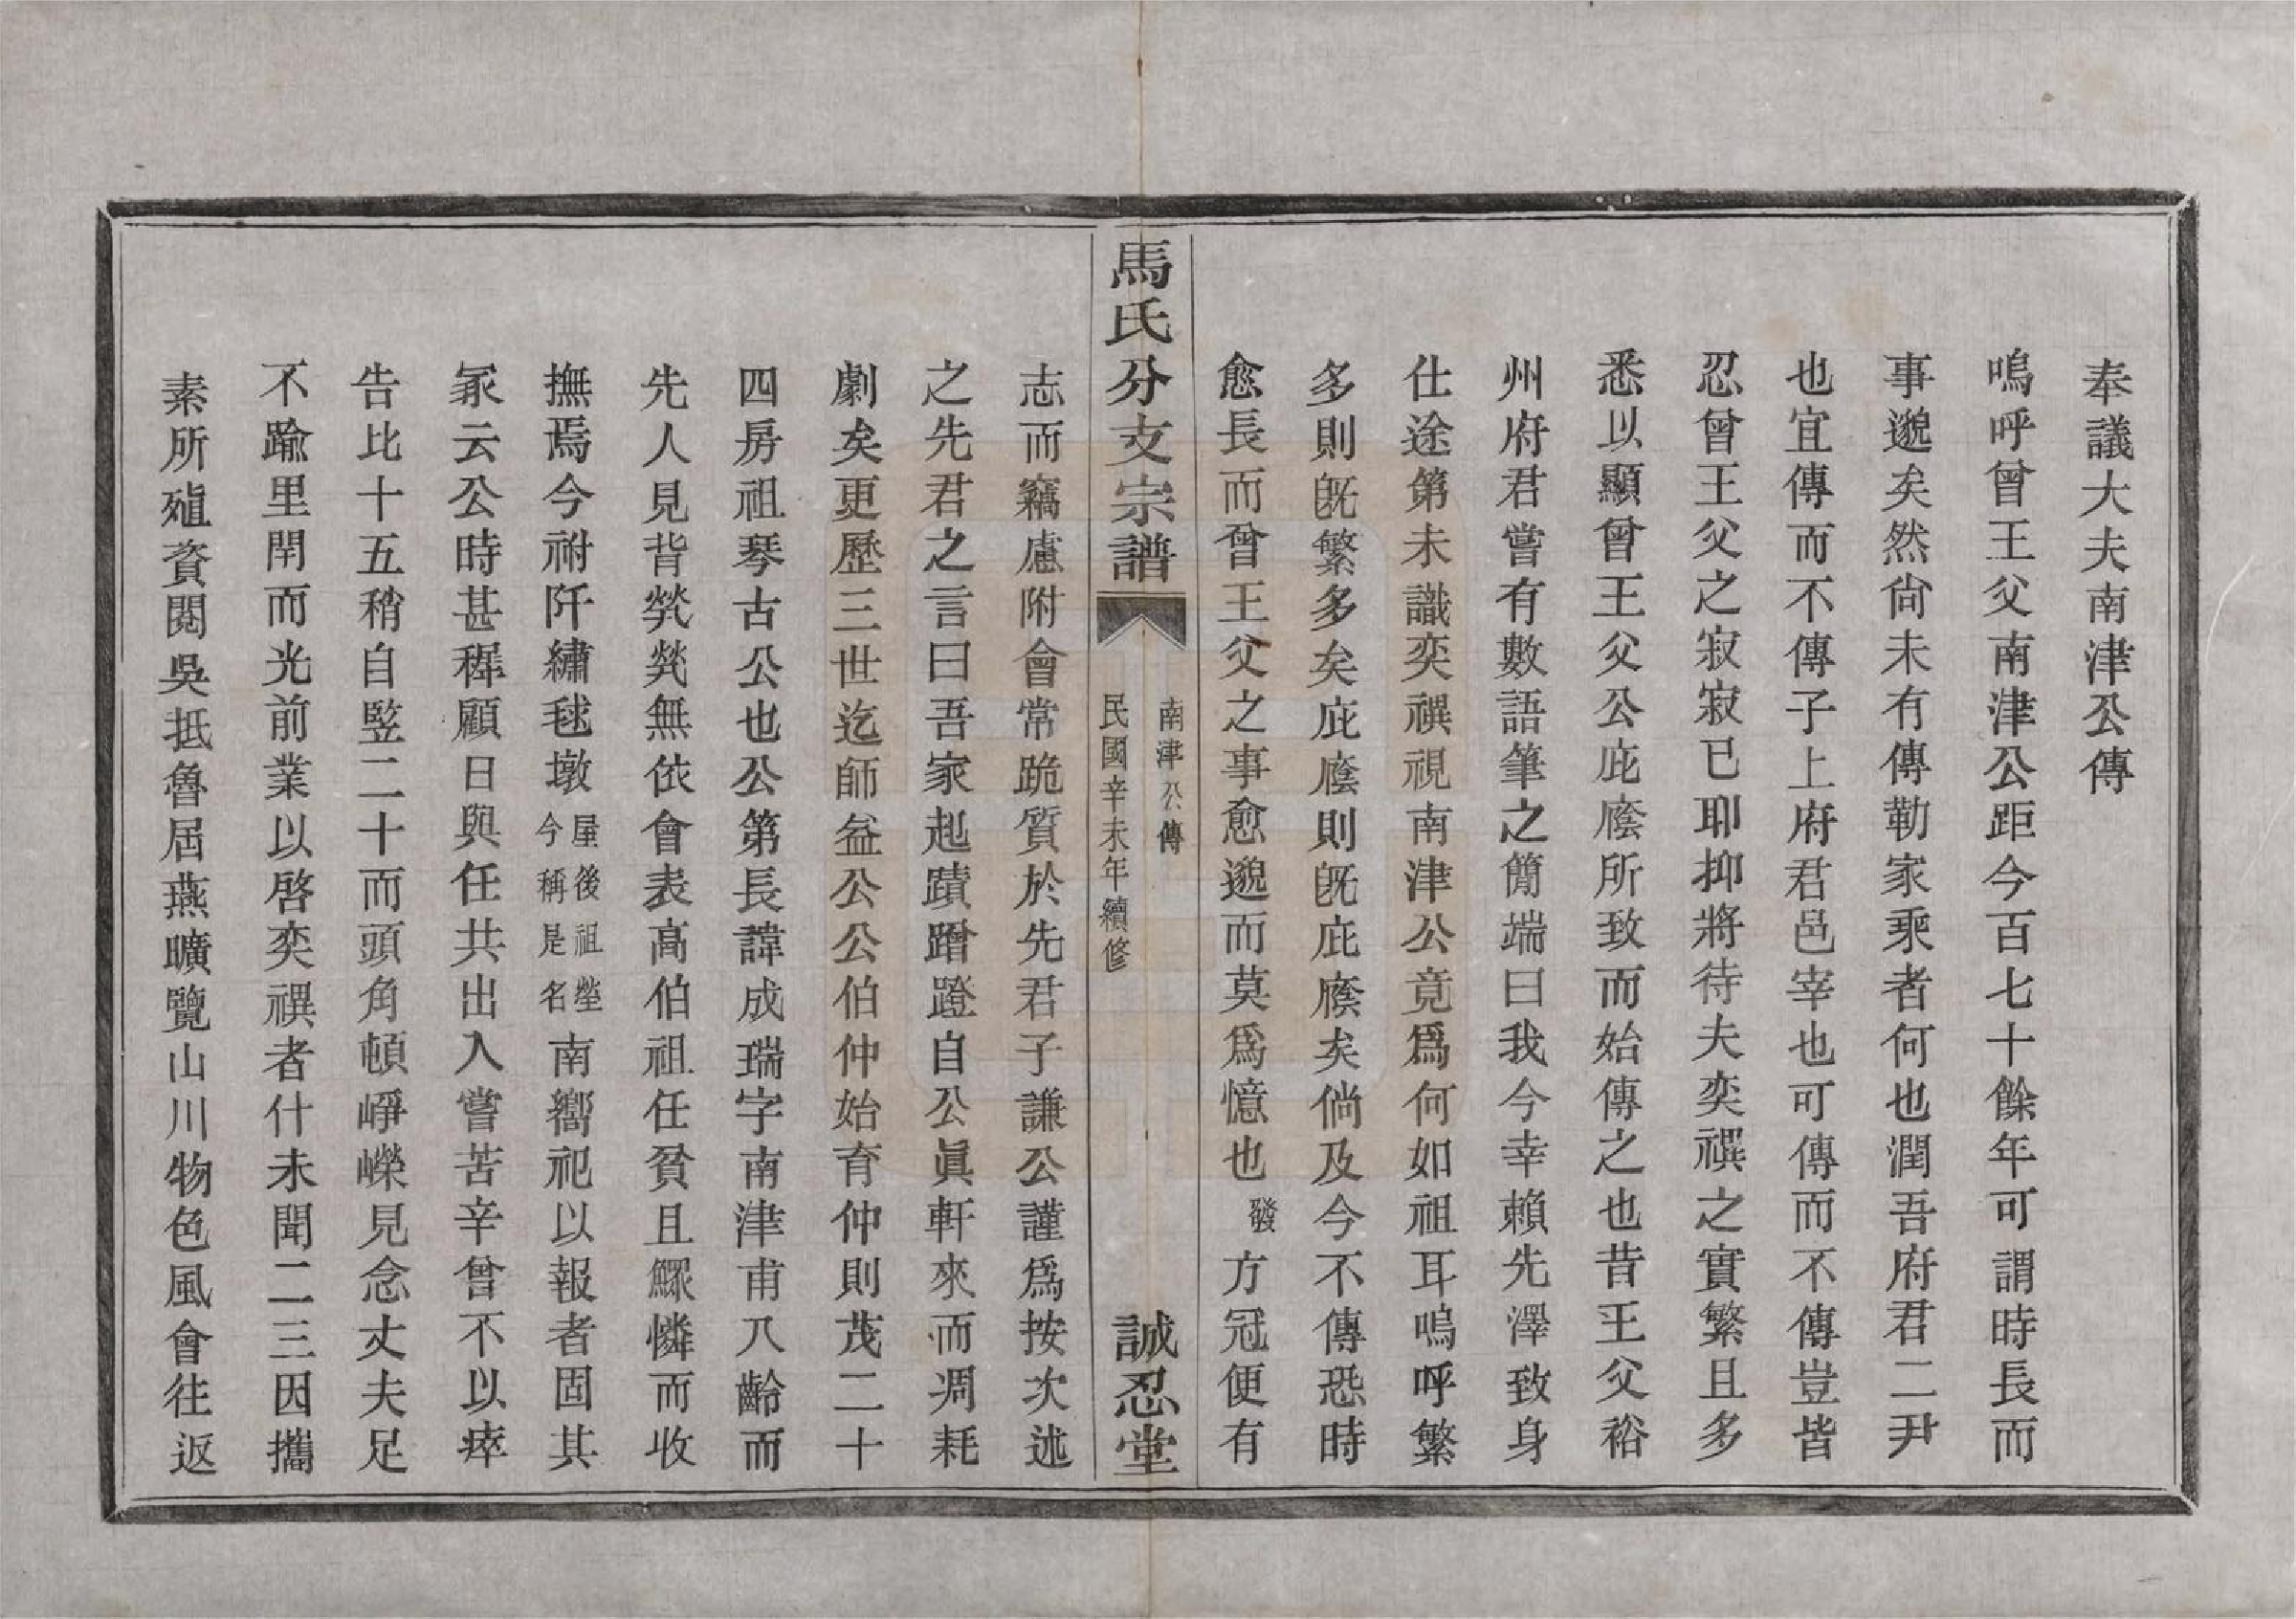 奉議大夫南津公傳
嗚呼曾王父南津公距今百七十餘年可謂時長而
事邈矣然尙未有傳勒家乘者何也潤吾府君二尹
也宜傳而不傳子上府君邑宰也可傳而不傳豈皆
忍曾王父之寂寂已耶抑將待夫奕禩之實繁且多
悉以顯曾王父公庇廕所致而始傳之也昔王父裕
州府君嘗有數語筆之簡端曰我今幸賴先澤致身
仕途第未識奕禩視南津公竟爲何如祖耳嗚呼繁
多則旣繁多矣庇廕則旣庇廕矣倘及今不傳恐時
愈長而曾王父之事愈邈而莫爲憶也發方冠便有
馬氏分支宗譜
南津公傳
民國辛未年續修
誠忍堂
志而竊慮附會常跪質於先君子謙公謹爲按次述
之先君之言曰吾家起蹟蹭蹬自公眞軒來而凋耗
劇矣更歷三世迄師益公公伯仲始育仲則茂二十
四房祖琴古公也公第長諱成瑞字南津甫八齡而
先人見背煢煢無依會表高伯祖任貧且鰥憐而收
撫焉今祔阡繡毬墩屋後祖塋今稱是名南嚮祀以報者固其
冢云公時甚穉顧日與任共出入嘗苦辛曾不以瘁
告比十五稍自竪二十而頭角頓崢嶸見念丈夫足
不踰里閈而光前業以啓奕禩者什未聞二三因攜
素所殖資閱吳抵魯居燕曠覽山川物色風會往返